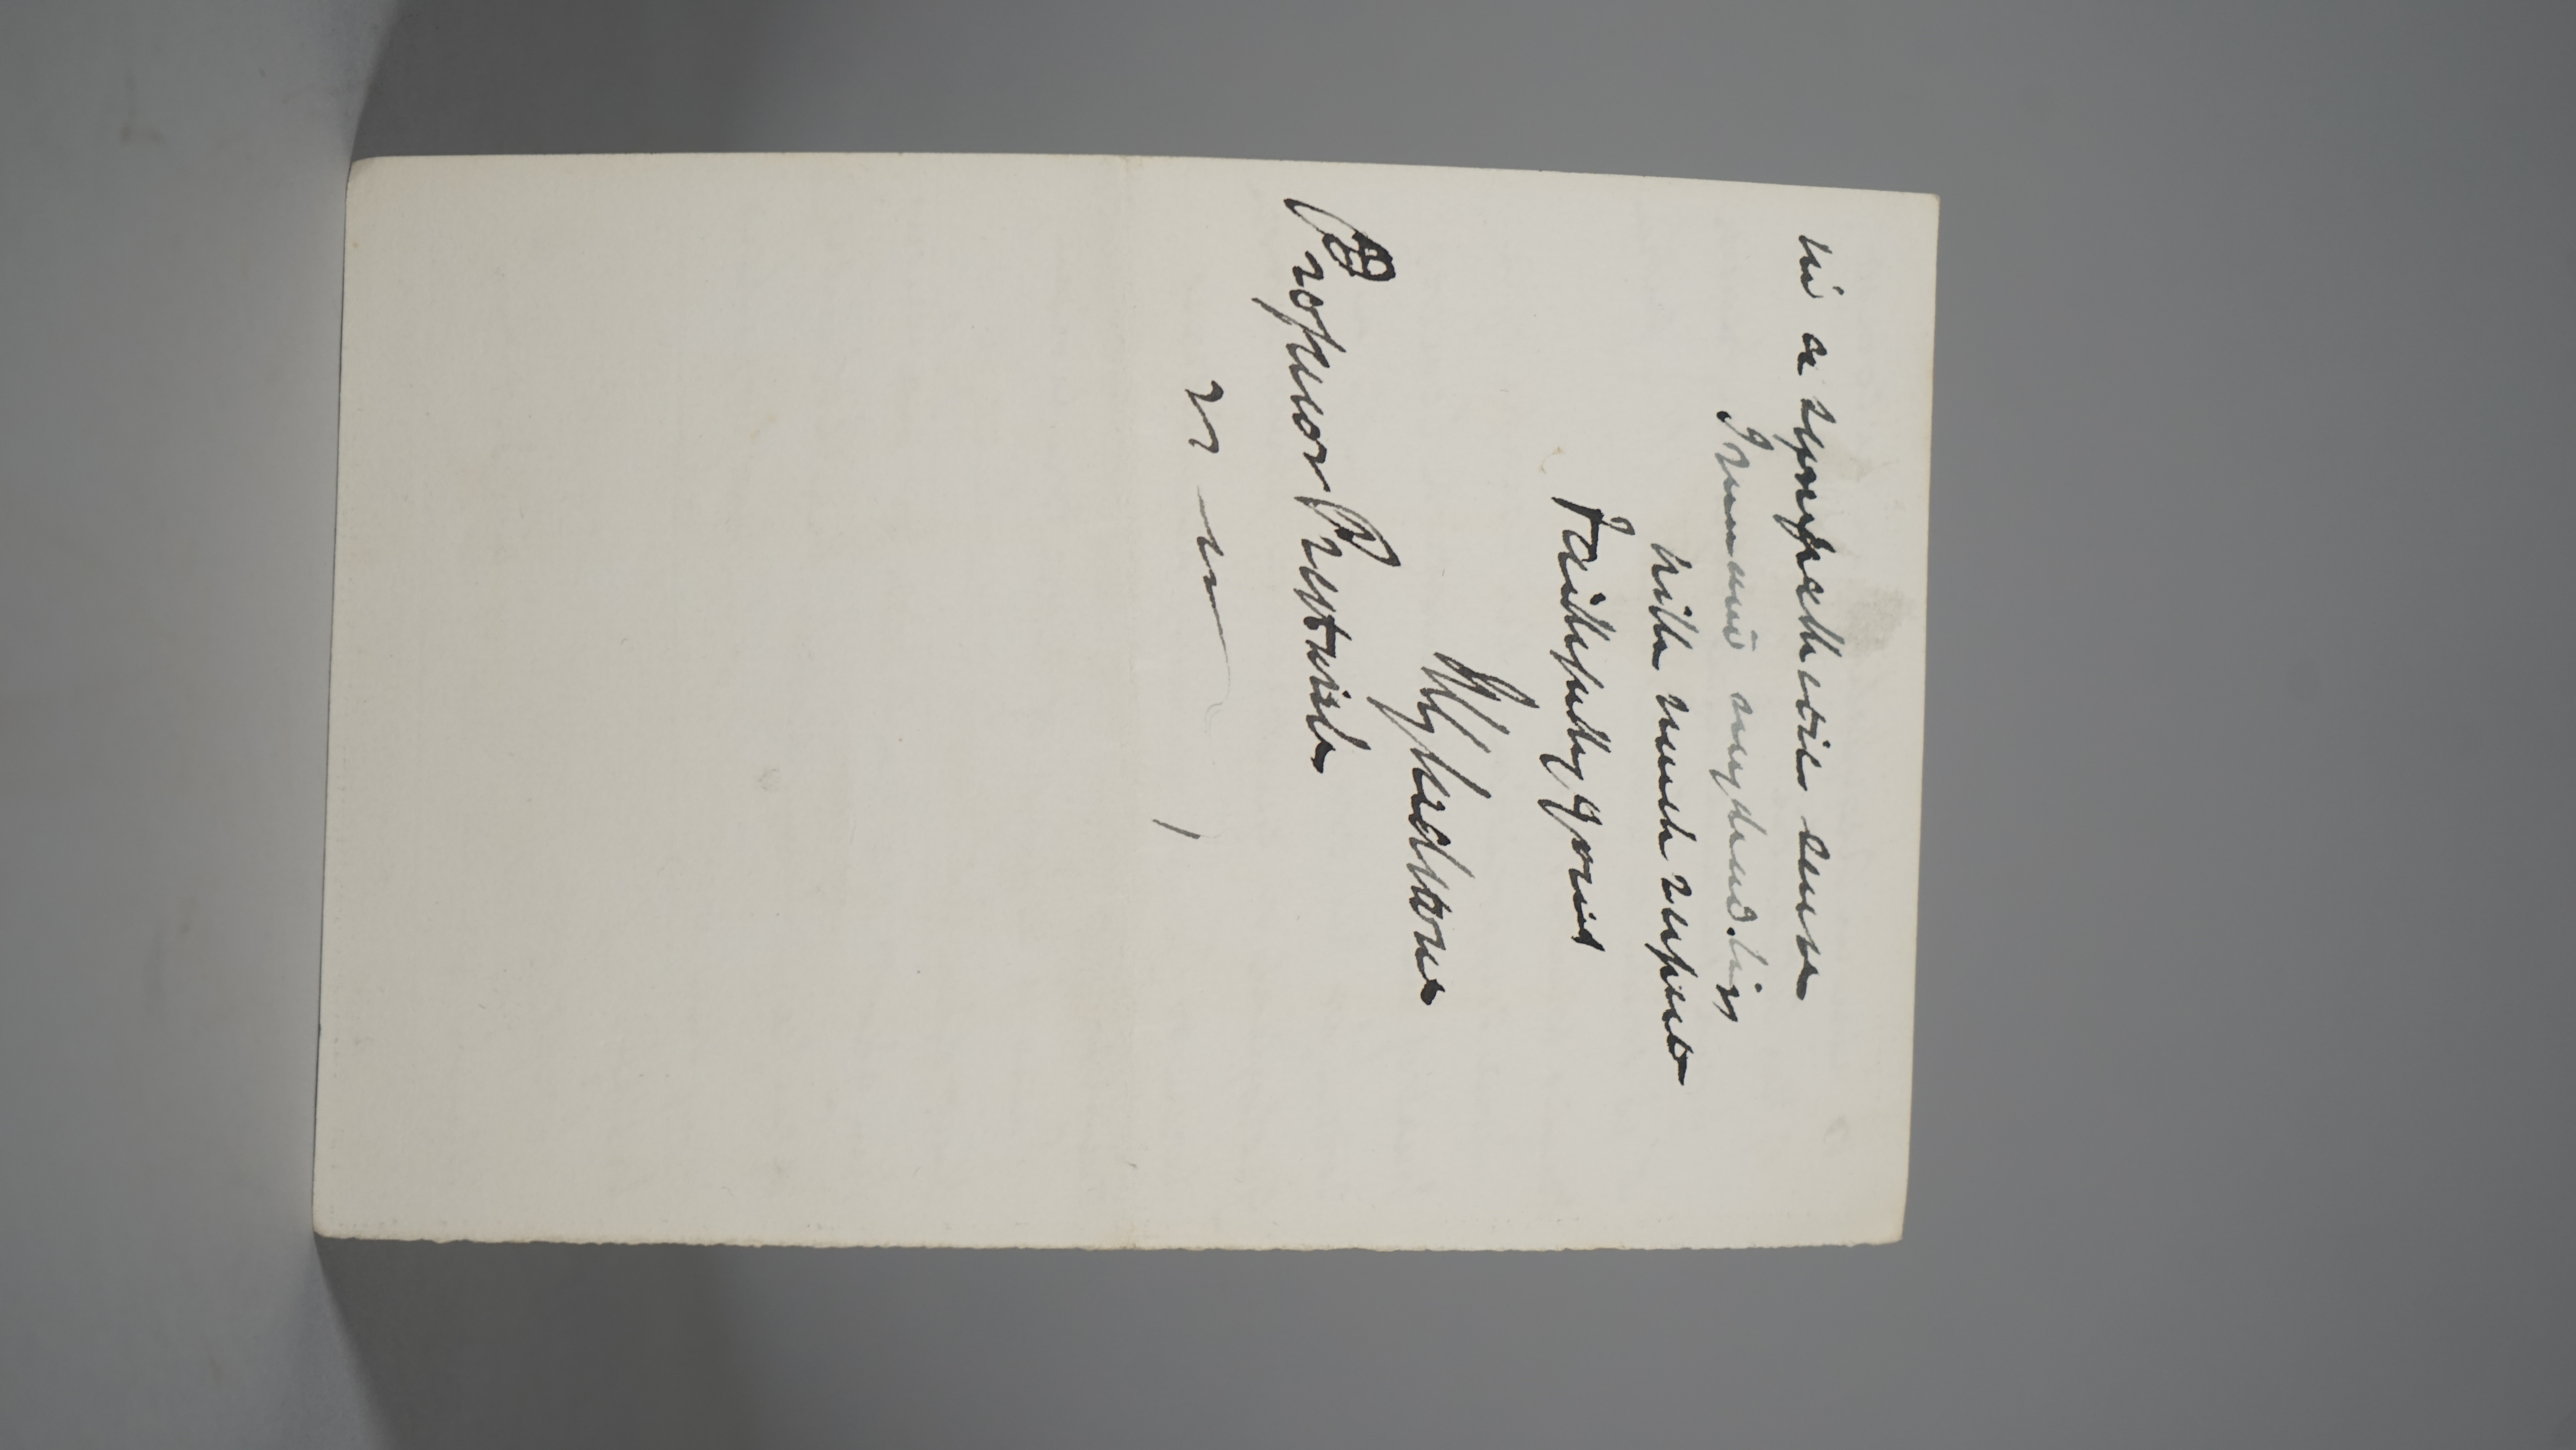 in a sympathetic sense
I remain my dear Sir
with much respect
Faithfully yours
W Gladstone
Professor Prestwich